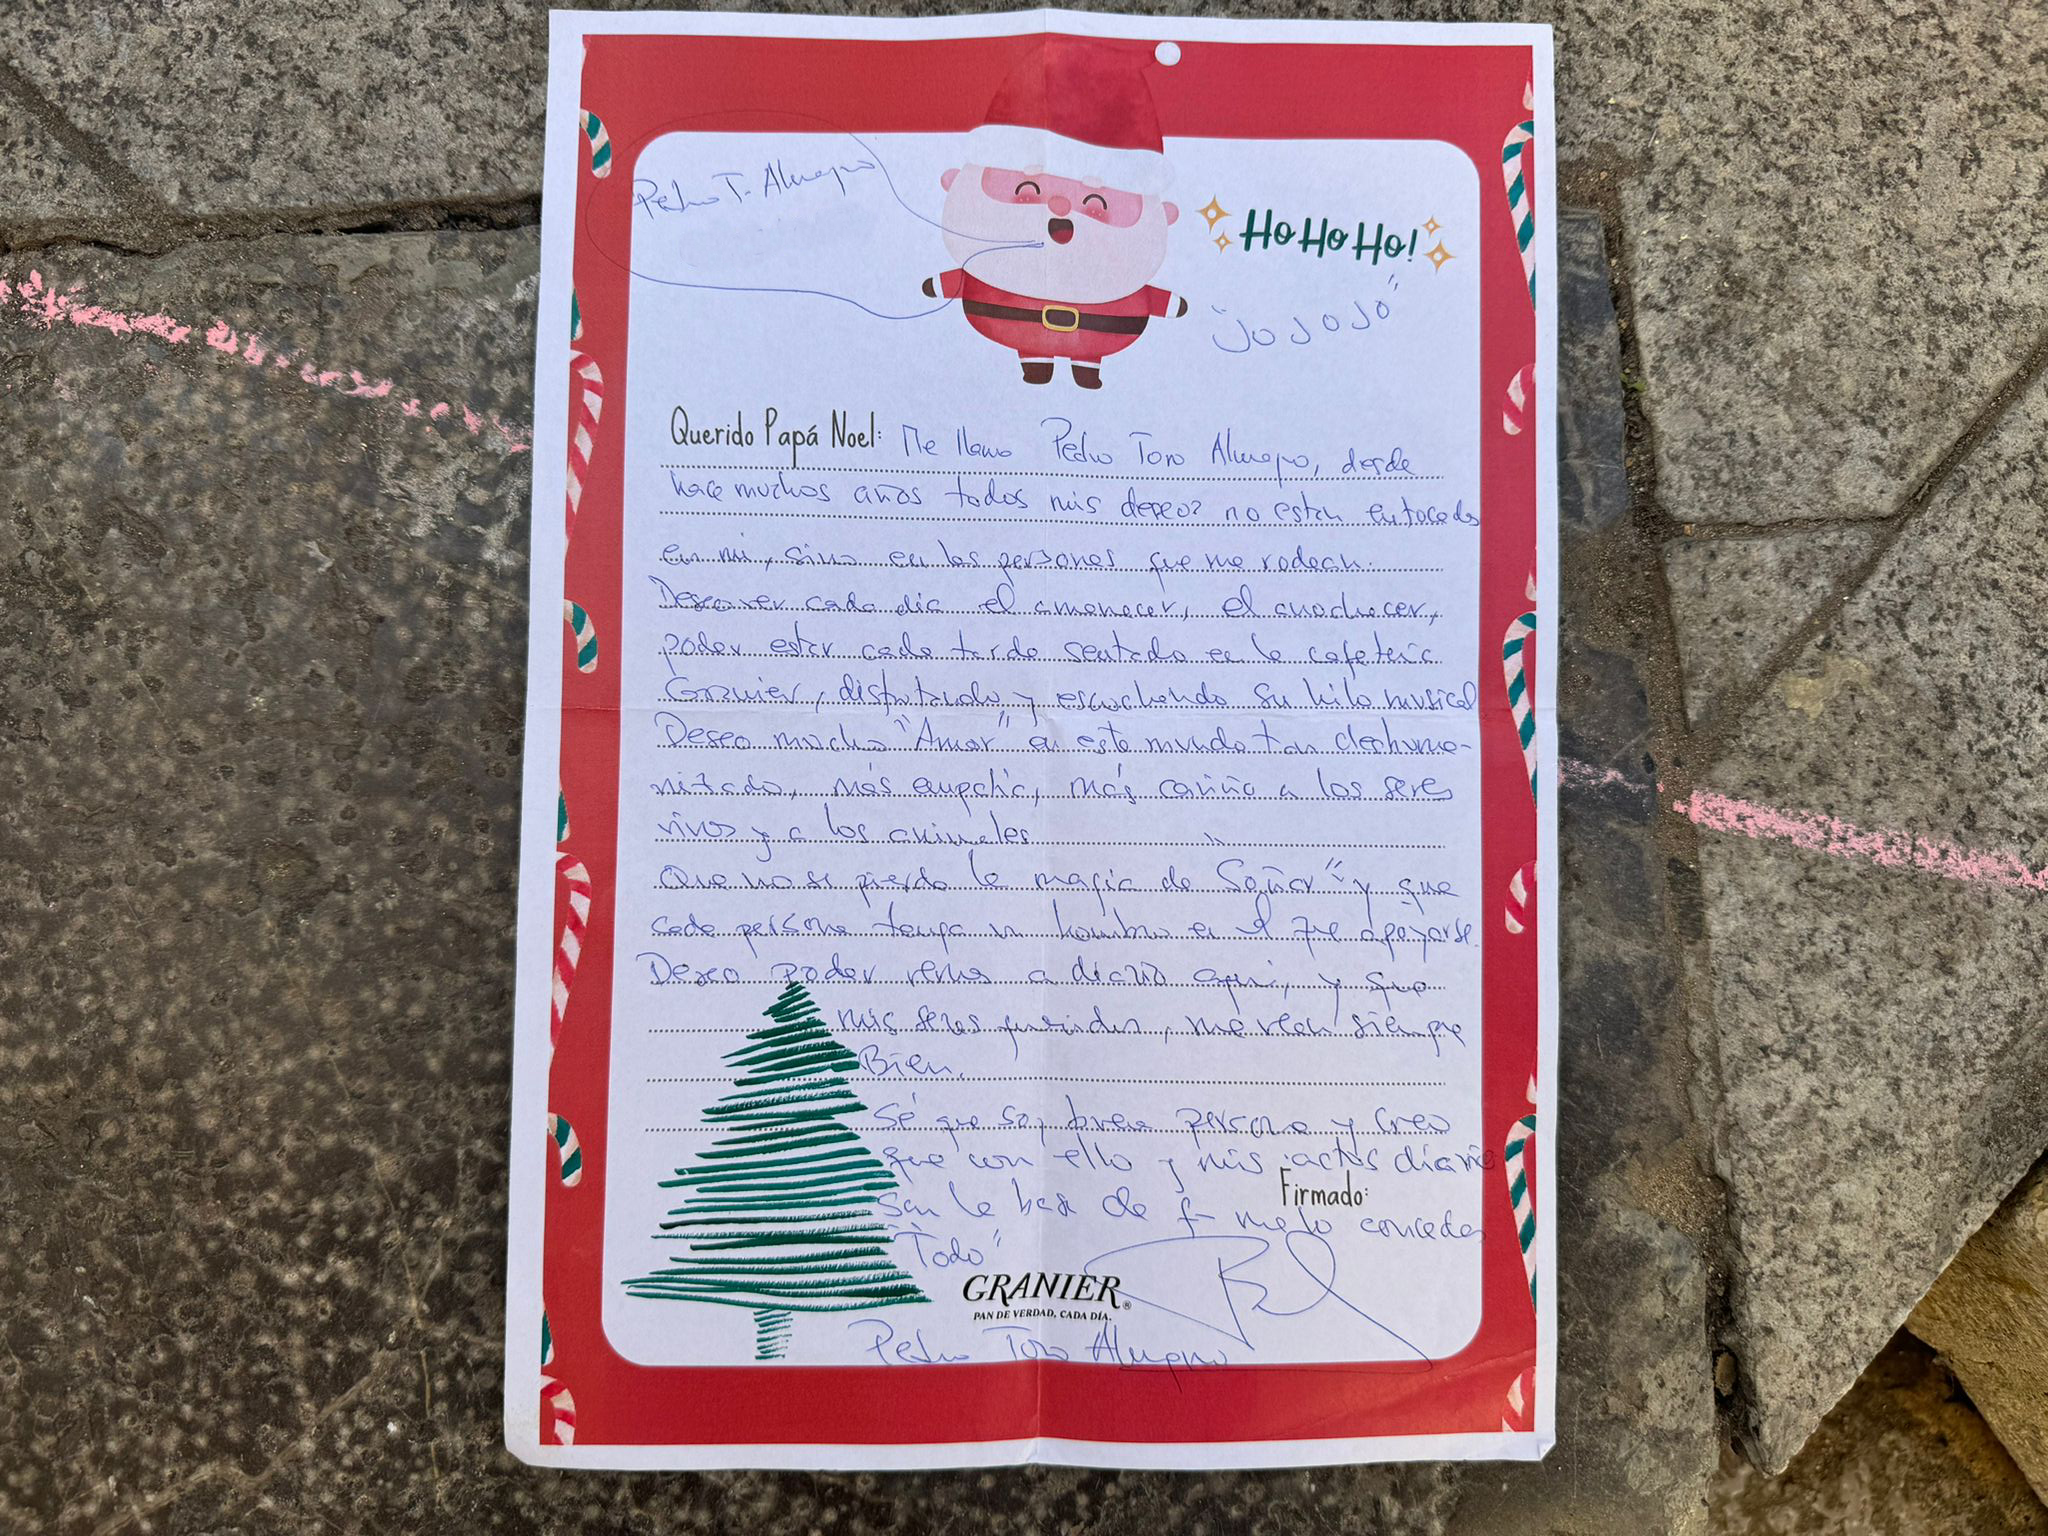 Pedro T. Almagro
Ho Ho Ho!
"JO JO JO"
Querido Papá Noel: Me llamo Pedro Toro Almagro, desde
hace muchos años todos mis deseos no estan enfocados
en mi, sino en las personas que me rodean.
Deseo ver cada dia el amanecer, el anochecer,
poder estar cada tarde sentado en la cafeteria
Granier, disfrutando y escuchando su hilo musical
Deseo mucho "Amor" en este mundo tan deshuma-
nizado, más empatia, más cariño a los seres
vivos y a los animales
Que no se pierda la magia de "Soñar" y que
cada persona tenga un hombro en el que apoyarse.
Deseo poder vernos a diario aqui, y que
mis seres queridos, me vean siempre
Bien.
Sé que soy buena persona y creo
que con ello y mis actos diarios
Firmado:
son la base de q- me lo concedas
"Todo"
GRANIER®
PAN DE VERDAD, CADA DÍA.
Pedro Toro Almagro